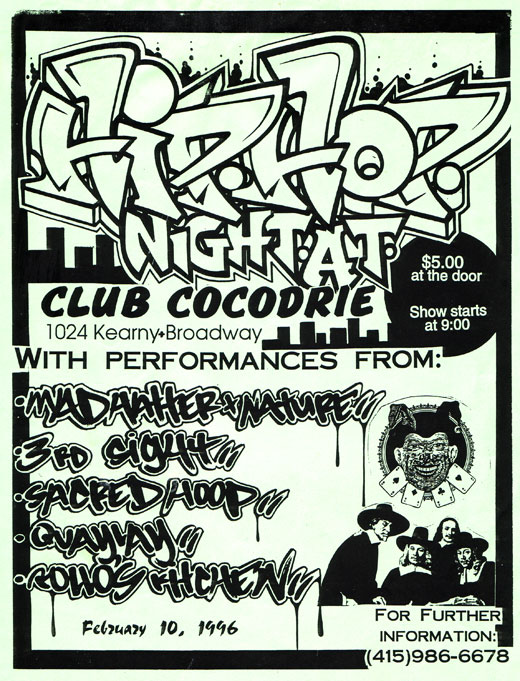 HIP.HOP.
NIGHT.AT.
CLUB COCODRIE
1024 Kearny•Broadway
$5.00
at the door
Show starts
at 9:00
WITH PERFORMANCES FROM:
MADHATTER & NATURE
3RD SIGHT
SACRED HOOP
QUAYLAY
KITCHEN
February 10, 1996
FOR FURTHER
INFORMATION:
(415)986-6678